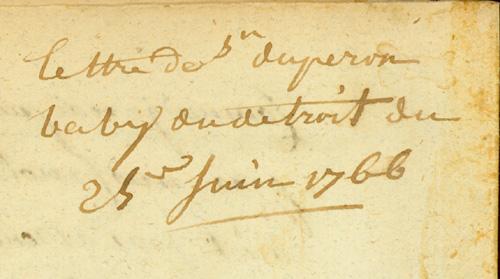 lettre de Sr duperon
baby du detroit du
25e Juin 1766